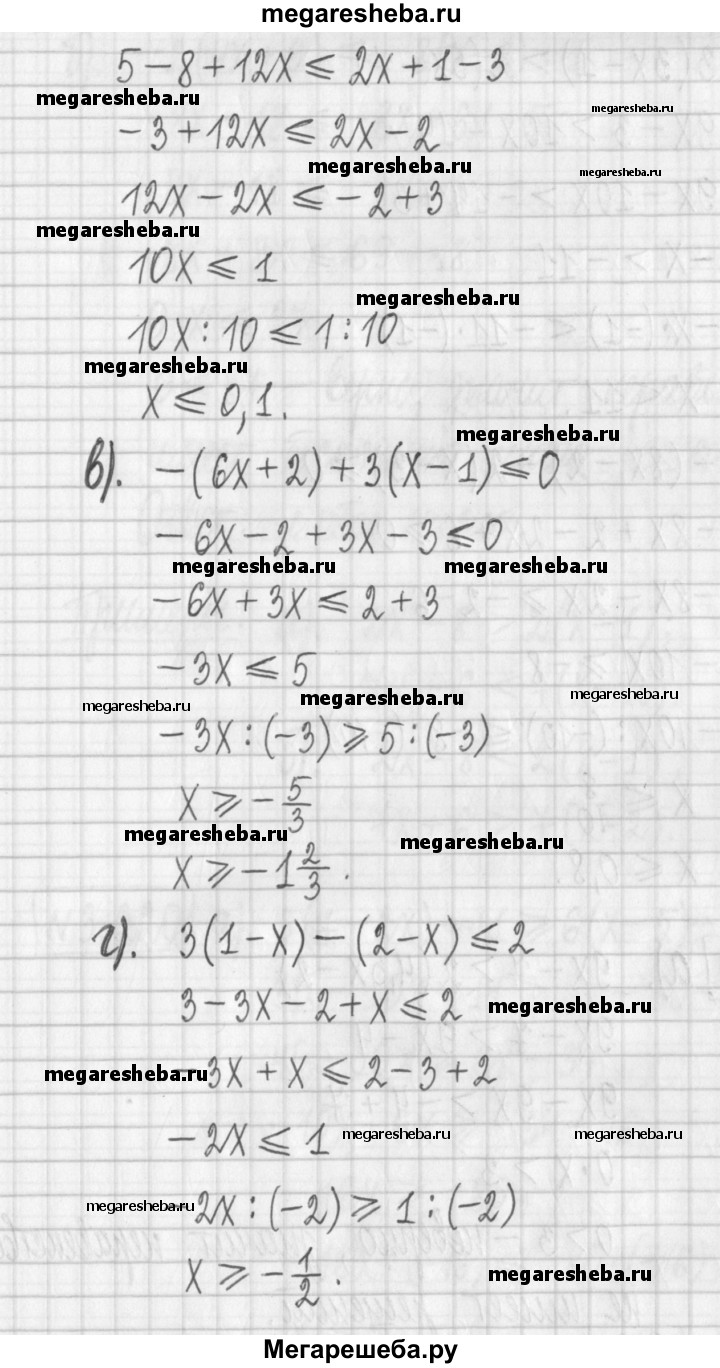 megaresheba.ru
5-8+12x ⩽ 2x+1-3
megaresheba.ru
megaresheba.ru
-3+12x ⩽ 2x-2
megaresheba.ru
megaresheba.ru
12x-2x ⩽ -2+3
megaresheba.ru
10x ⩽ 1
megaresheba.ru
10x:10 ⩽ 1:10
megaresheba.ru
x ⩽ 0,1.
megaresheba.ru
в). -(6x+2)+3(x-1) ⩽ 0
-6x-2+3x-3 ⩽ 0
megaresheba.ru megaresheba.ru
-6x+3x ⩽ 2+3
-3x ⩽ 5
megaresheba.ru megaresheba.ru megaresheba.ru
-3x:(-3) ⩾ 5:(-3)
x ⩾ -5/3
megaresheba.ru megaresheba.ru
x ⩾ -1 2/3.
г). 3(1-x)-(2-x) ⩽ 2
3-3x-2+x ⩽ 2 megaresheba.ru
megaresheba.ru -3x+x ⩽ 2-3+2
-2x ⩽ 1 megaresheba.ru megaresheba.ru
megaresheba.ru -2x:(-2) ⩾ 1:(-2)
x ⩾ -1/2. megaresheba.ru
Мегарешеба.ру